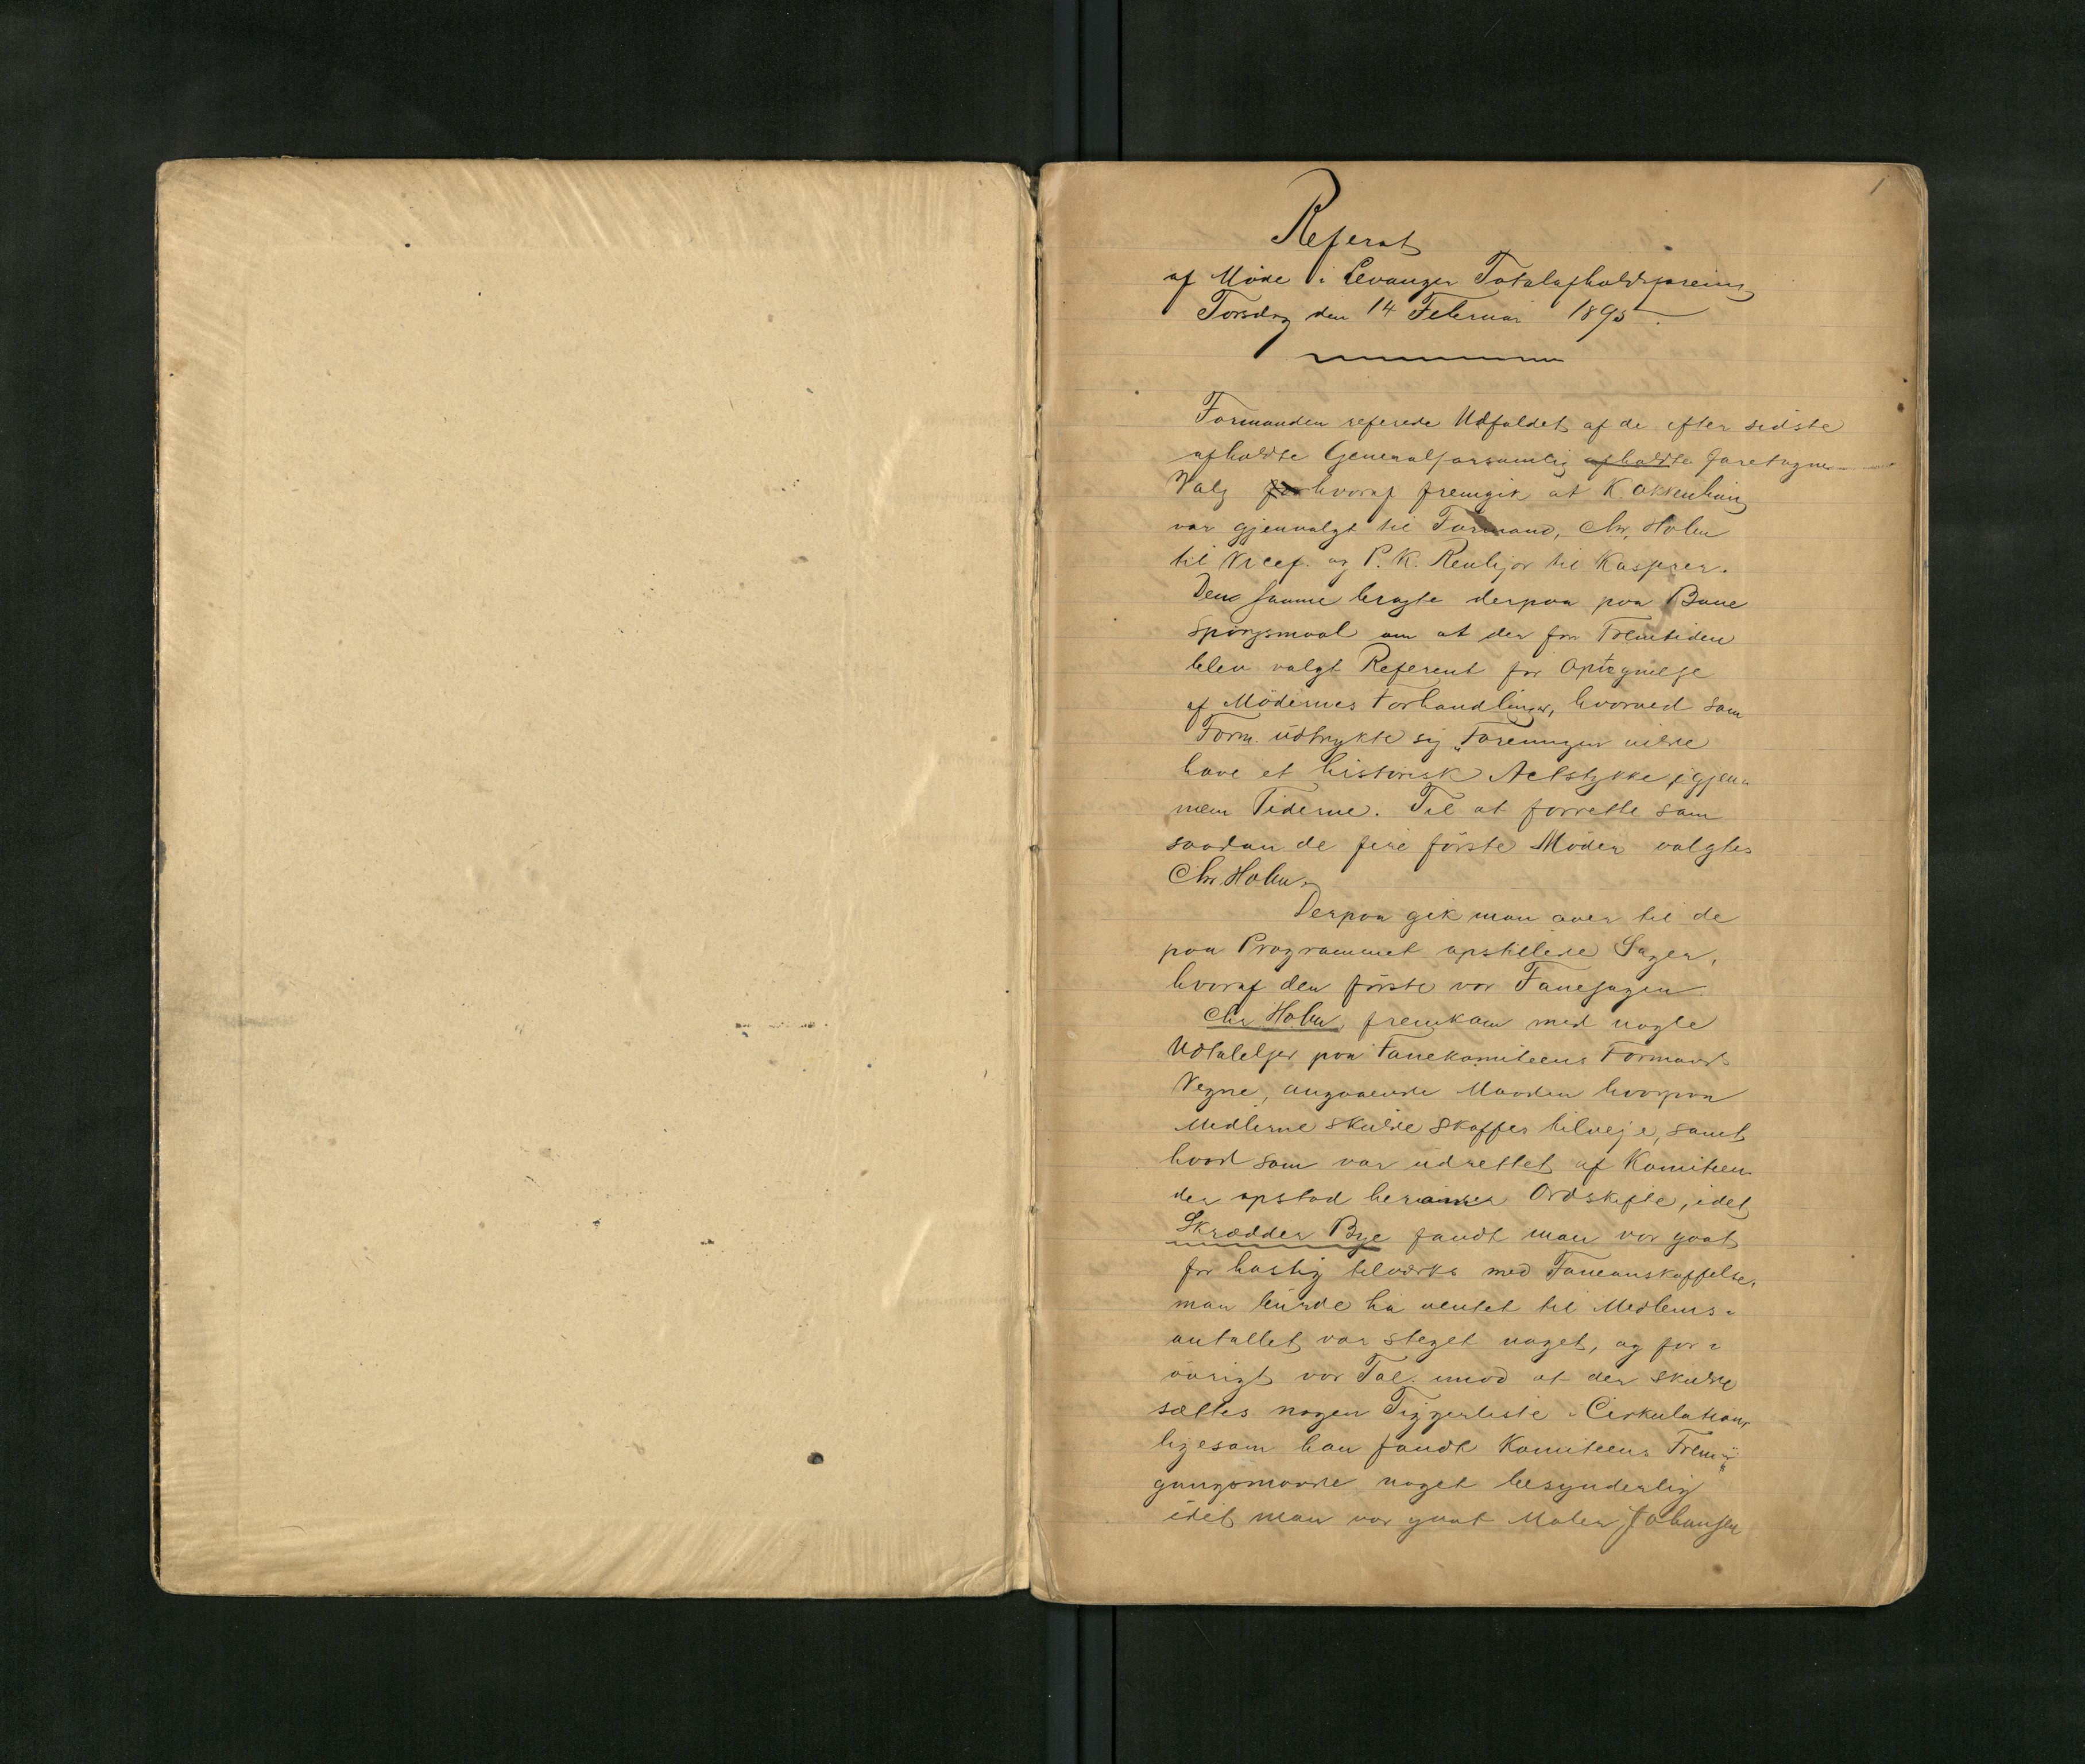 1
Referat
af Möde i Levanger Totalafholdsforening
Torsdag den 14 Februar 1895.
Formanden referede Udfaldet af de efter sidste
afholdte Generalforsamlig afholdte foretagne
Valg for hvoraf fremgik at K. Okkenhaug
var gjenvalgt til Formand, Chr. Holm
til Vicef. og P. K. Reitgjør til Kasserer.
Den Samme bragte derpaa paa Bane
Spörgsmaal om at der for Fremtiden
blev valgt Referent for Optegnelse
af Mödernes Forhandlinger, hvorved som
Form. udtrykte sig „Foreningen vilde
have et historisk Actstykke igjen-
nem Tiderne. Til at forrette som
saadan de fire förste Möder valgtes
Chr. Holm.
Derpaa gik man over til de
paa Programmet opstillede Sager,
hvoraf den förste var Fanesagen
Chr Holm, fremkom med nogle
Udtalelser paa Fanekomiteens Formands
Vegne, angaaende Maaden hvorpaa
Midlerne skulde skaffes tilveje, samt
hvad som var udrettet af Komiteen.
der opstod herom Ordskifte, idet
Skrædder Bye fandt man var gaat
for hastig tilværks med Faneanskaffelse,
man burde ha ventet til Medlems-
antallet var steget noget, og for-
övrigt var Tal. imod at der skulde
sættes nogen Tiggerliste i Cirkulation,
ligesom han fandt Komiteens Frem-
gangsmaade noget besynderlig
idet man var gaat Maler Johansen